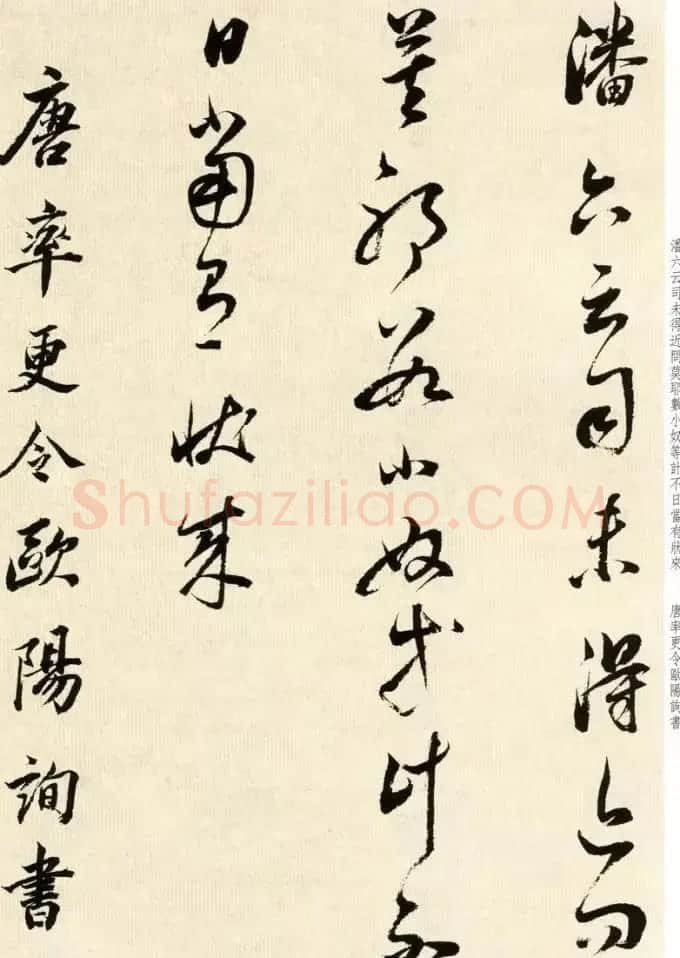 潘六云司未得近問
莫耶數小奴等計不
日當有狀來
唐率更令歐陽詢書
潘六云司未得近問莫耶數小奴等計不日當有狀來　唐率更令歐陽詢書
Shufaziliao.COM